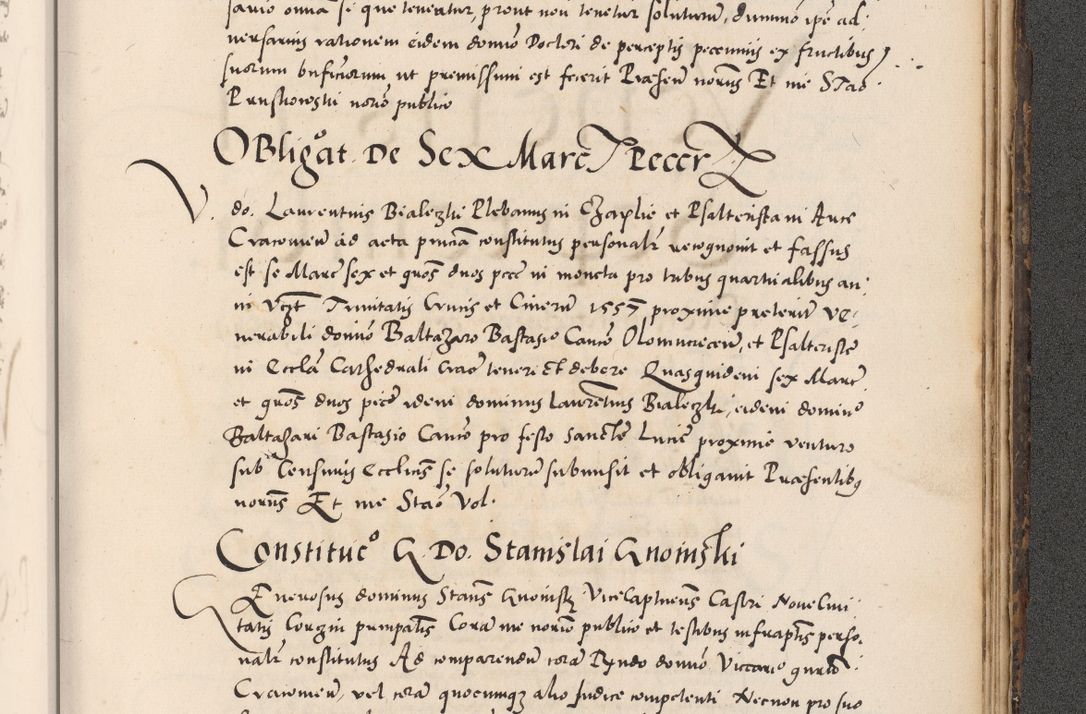 sario omnia se que tenentur, prout non tenetur soluturum, dummo ipse ad
versarius rationem eidem domino Doctori de perceptis pecuniis ex fructibus
suorum bnficiorum ut premissum est fecerit Præsen notariis Et me Stao
Pruskowski notario publico
OBligat De Sex Marc Recer
V. do. Laurentius Bialeczki Plebanus in et Psalterista in Arce
Cracovien ad acta princia constitutus personalr recognovit et fassus
est se Marc sex et gros duos pecce in moneta pro tribus quartualibus an
ni Trinitatis Crucis et Cinerum 1557 proxime preterit ve
nerabili domino Baltazaro Bastasio Canco Olomucecen, et Psalteriste
in Eccla Cathedrali Craco tenere et debere Quasquidem sex Marc
et gros duos pecce idem dominus Laurentius Bialeczki, eidem domino
Baltazari Bastasio Canco pro festo sancte Lucie proxime venturo
sub Censuris Ecclicis se soluturum submisit et obligavit Præsentibus
notariis Et me Stao Vol.
Constituc G. Do. Stanislai Gnoinski
Generosus dominus Stans Gnoinski Vicecaptneus Castri Nove Civi
tatis Corczin principalis Coram me notario publico et testibus infraptis perso
nalr constitutus Ad comparendum coram Rndo domino Vicario
Cracovien, vel coram quocumque alio Judice competenti Necnon pro suo